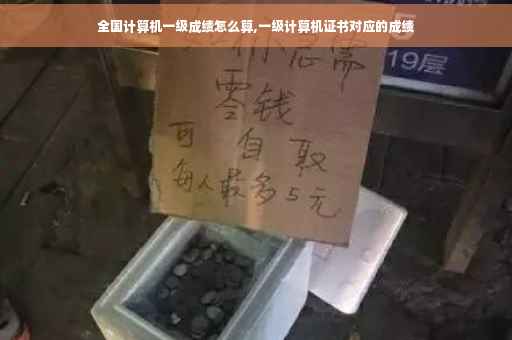 全国计算机一级成绩怎么算,一级计算机证书对应的成绩
你急需
零钱
可自取
每人最多5元
5
19层